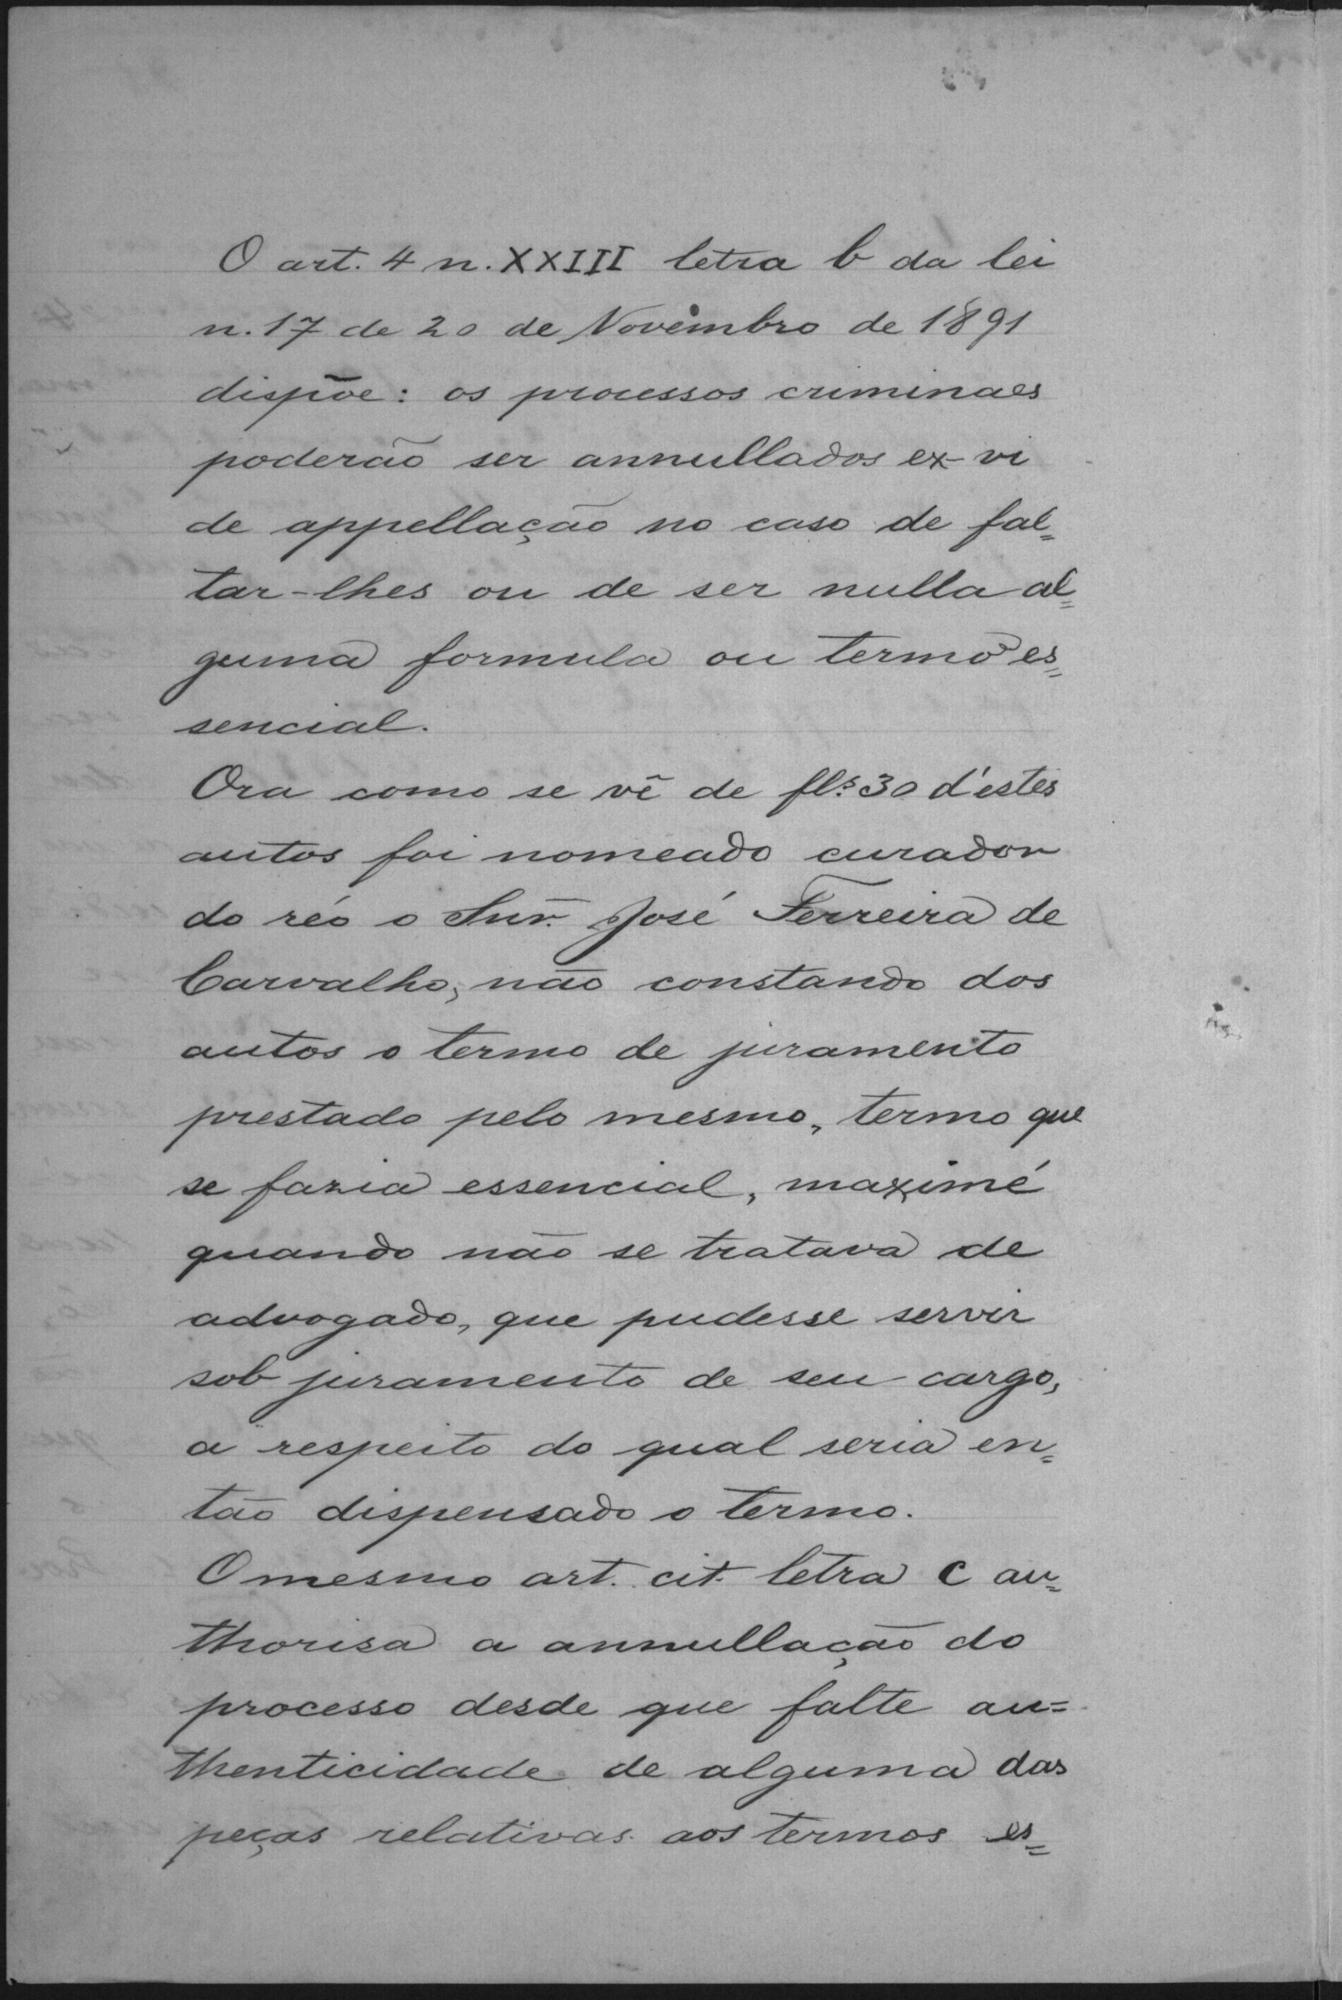 O art. 4 n. XXIII letra b da lei
n. 17 de 20 de Novembro de 1891
dispõe: os processos criminaes
poderão ser annullados ex-vi
de appellação no caso de fal=
tar-lhes ou de ser nulla al=
guma formula ou termo es=
sencial.
Ora como se vê de fls. 30 d'estes
autos foi nomeado curador
do réo o Snr. José Ferreira de
Carvalho, não constando dos
autos o termo de juramento
prestado pelo mesmo, termo que
se fazia essencial, maximé
quando não se tratava de
advogado, que pudesse servir
sob juramento de seu cargo,
a respeito do qual seria en=
tão dispensado o termo.
O mesmo art. cit. letra C au=
thorisa a annullação do
processo desde que falte au=
thenticidade de alguma das
peças relativas aos termos es=